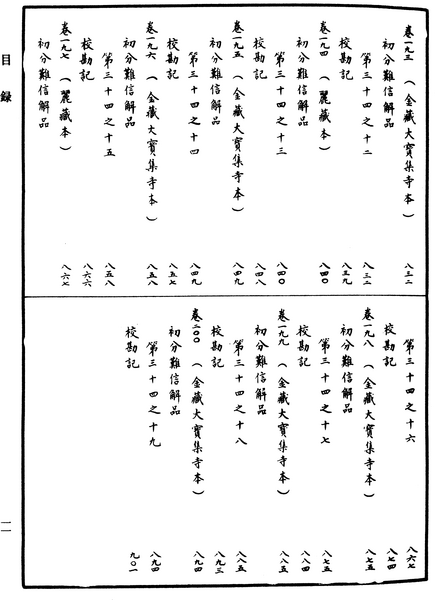 卷一九三（金藏大寶集寺本） 八三二
初分難信解品
第三十四之十二 八三二
校勘記 八三九
卷一九四（麗藏本） 八四〇
初分難信解品
第三十四之十三 八四〇
校勘記 八四八
卷一九五（金藏大寶集寺本） 八四九
初分難信解品
第三十四之十四 八四九
校勘記 八五七
卷一九六（金藏大寶集寺本） 八五八
初分難信解品
第三十四之十五 八五八
校勘記 八六六
卷一九七（麗藏本） 八六七
初分難信解品
第三十四之十六 八六七
校勘記 八七四
卷一九八（金藏大寶集寺本） 八七五
初分難信解品
第三十四之十七 八七五
校勘記 八八四
卷一九九（金藏大寶集寺本） 八八五
初分難信解品
第三十四之十八 八八五
校勘記 八九三
卷二〇〇（金藏大寶集寺本） 八九四
初分難信解品
第三十四之十九 八九四
校勘記 九〇一
目錄
一一